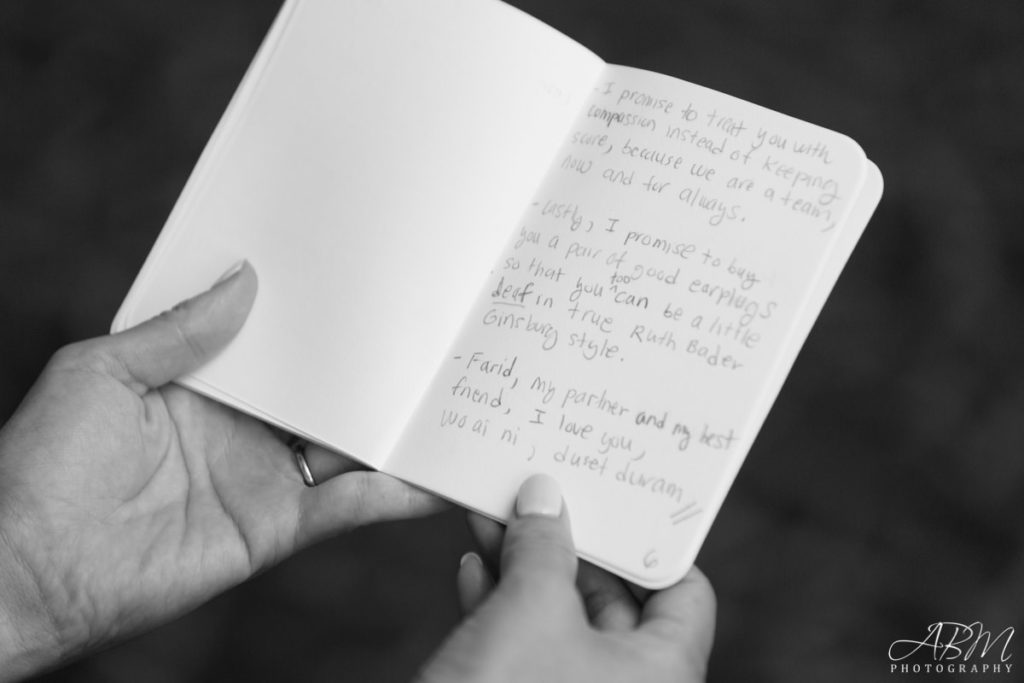 - I promise to treat you with
compassion instead of keeping
score, because we are a team,
now and for always.
- Lastly, I promise to buy
you a pair of good earplugs
so that you too can be a little
deaf in true Ruth Bader
Ginsburg style.
- Farid, my partner and my best
friend, I love you,
wo ai ni, duset duram
6
ABM
PHOTOGRAPHY